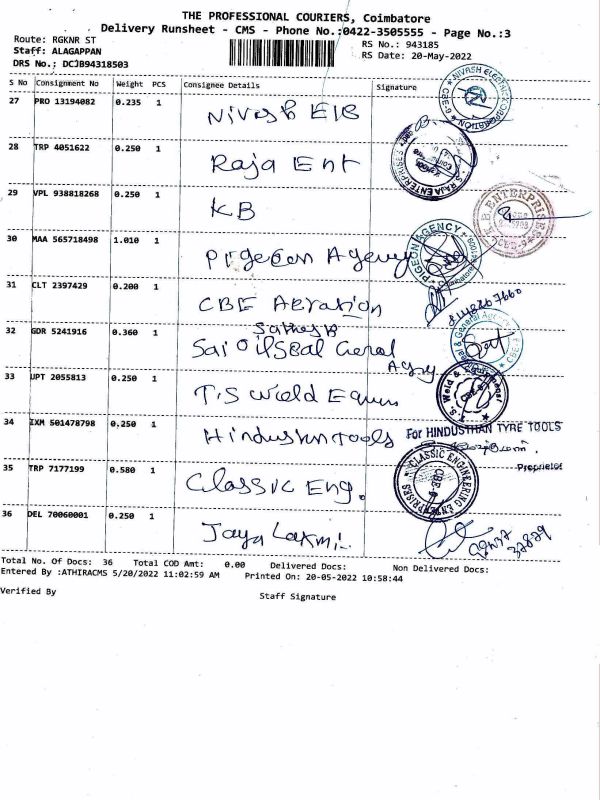 THE PROFESSIONAL COURIERS, Coimbatore
Delivery Runsheet - CMS - Phone No.:0422-3505555 - Page No.:3
Route: RGKNR ST
RS No.: 943185
Staff: ALAGAPPAN
RS Date: 20-May-2022
DRS No.: DCJB94318503
S No Consignment No Weight PCS Consignee Details Signature
27 PRO 13194082 0.235 1 Nivash E/B
28 TRP 4051622 0.250 1 Raja Ent
29 VPL 938818268 0.250 1 KB
K B ENTERPRISES
CBE-9
30 MAA 565718498 1.010 1 Pigeon Agency
PIGEON AGENCY
31 CLT 2397429 0.200 1 CBE Aeration
32 GDR 5241916 0.360 1 Sai Oil Seal General
Agy
33 UPT 2055813 0.250 1 T.S Weld Equm
34 IXM 501478798 0.250 1 Hindusthan Tools
For HINDUSTHAN TYRE TOOLS
Proprietor
35 TRP 7177199 0.580 1 Classic Eng.
CLASSIC ENGINEERING ENTERPRISES
36 DEL 70060001 0.250 1 Jaya Laxmi
Total No. Of Docs: 36 Total COD Amt: 0.00 Delivered Docs: Non Delivered Docs:
Entered By :ATHIRACMS 5/20/2022 11:02:59 AM Printed On: 20-05-2022 10:58:44
Verified By
Staff Signature